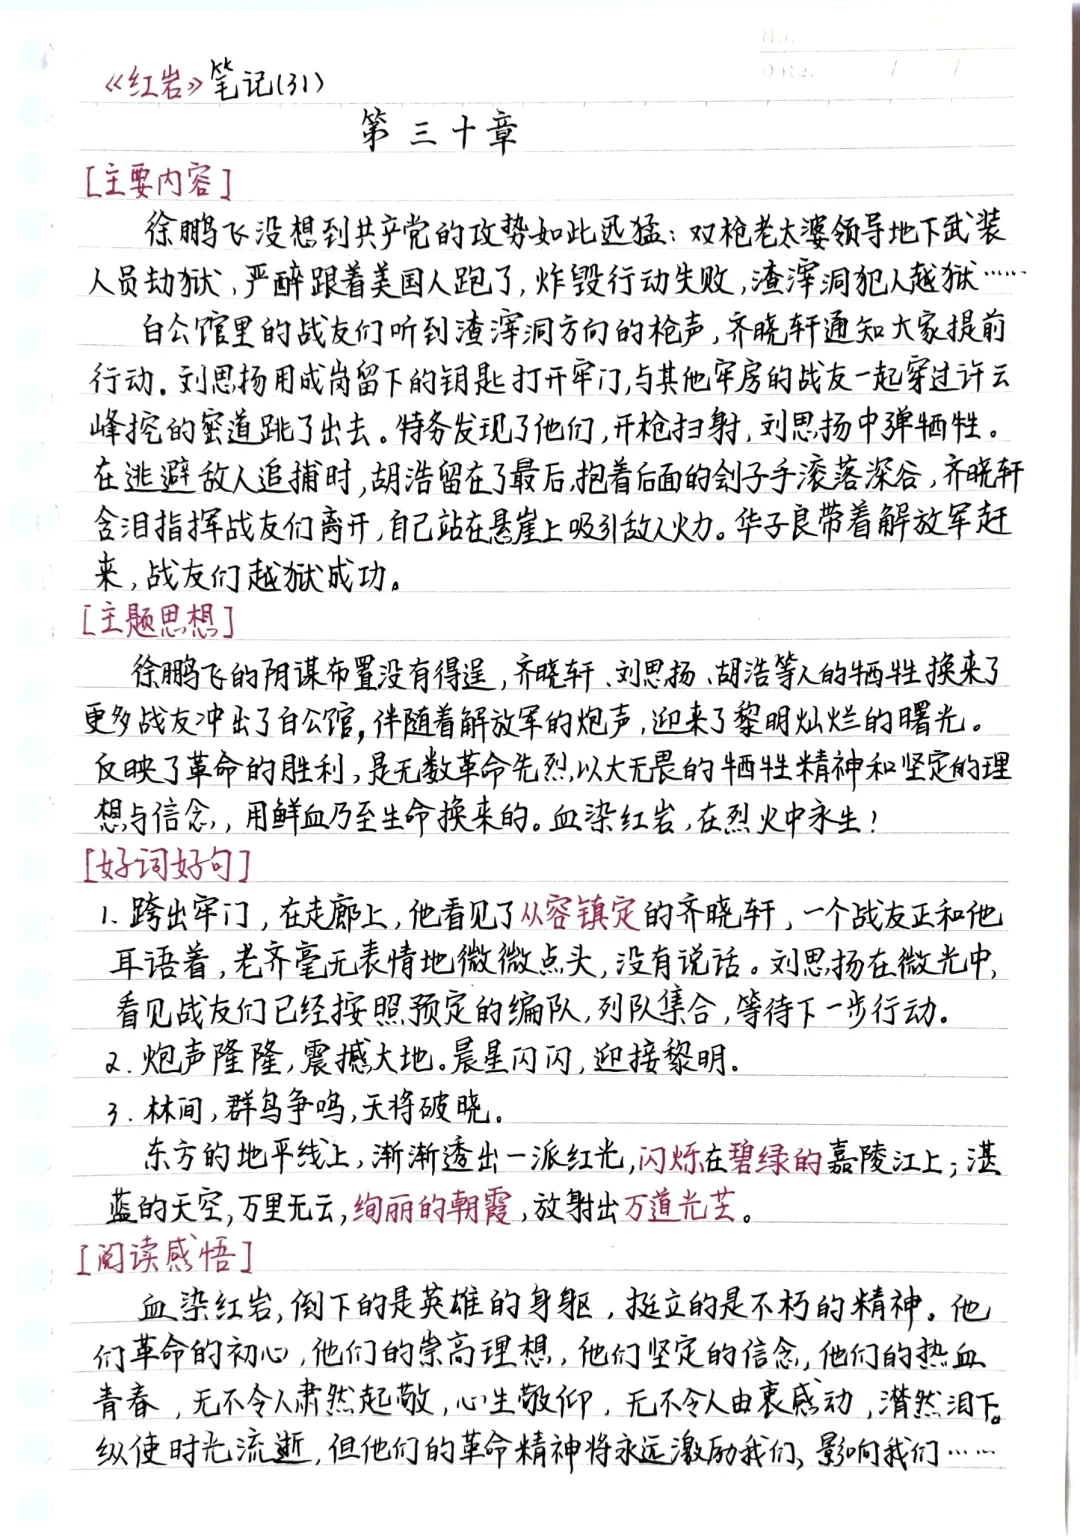 No.
Date. / /
《红岩》笔记(31)
第三十章
[主要内容]
徐鹏飞没想到共产党的攻势如此迅猛：双枪老太婆领导地下武装
人员劫狱，严醉跟着美国人跑了，炸毁行动失败，渣滓洞犯人越狱……
白公馆里的战友们听到渣滓洞方向的枪声，齐晓轩通知大家提前
行动。刘思扬用成岗留下的钥匙打开牢门，与其他牢房的战友一起穿过许云
峰挖的密道跳了出去。特务发现了他们，开枪扫射，刘思扬中弹牺牲。
在逃避敌人追捕时，胡浩留在了最后，抱着后面的刽子手滚落深谷，齐晓轩
含泪指挥战友们离开，自己站在悬崖上吸引敌人火力。华子良带着解放军赶
来，战友们越狱成功。
[主题思想]
徐鹏飞的阴谋布置没有得逞，齐晓轩、刘思扬、胡浩等人的牺牲换来了
更多战友冲出了白公馆，伴随着解放军的炮声，迎来了黎明灿烂的曙光。
反映了革命的胜利，是无数革命先烈，以大无畏的牺牲精神和坚定的理
想与信念，用鲜血乃至生命换来的。血染红岩，在烈火中永生！
[好词好句]
1. 跨出牢门，在走廊上，他看见了从容镇定的齐晓轩，一个战友正和他
耳语着，老齐毫无表情地微微点头，没有说话。刘思扬在微光中，
看见战友们已经按照预定的编队，列队集合，等待下一步行动。
2. 炮声隆隆，震撼大地。晨星闪闪，迎接黎明。
3. 林间，群鸟争鸣，天将破晓。
东方的地平线上，渐渐透出一派红光，闪烁在碧绿的嘉陵江上；湛
蓝的天空，万里无云，绚丽的朝霞，放射出万道光芒。
[阅读感悟]
血染红岩，倒下的是英雄的身躯，挺立的是不朽的精神。他
们革命的初心，他们的崇高理想，他们坚定的信念，他们的热血
青春，无不令人肃然起敬，心生敬仰，无不令人由衷感动，潸然泪下。
纵使时光流逝，但他们的革命精神将永远激励我们，影响我们……